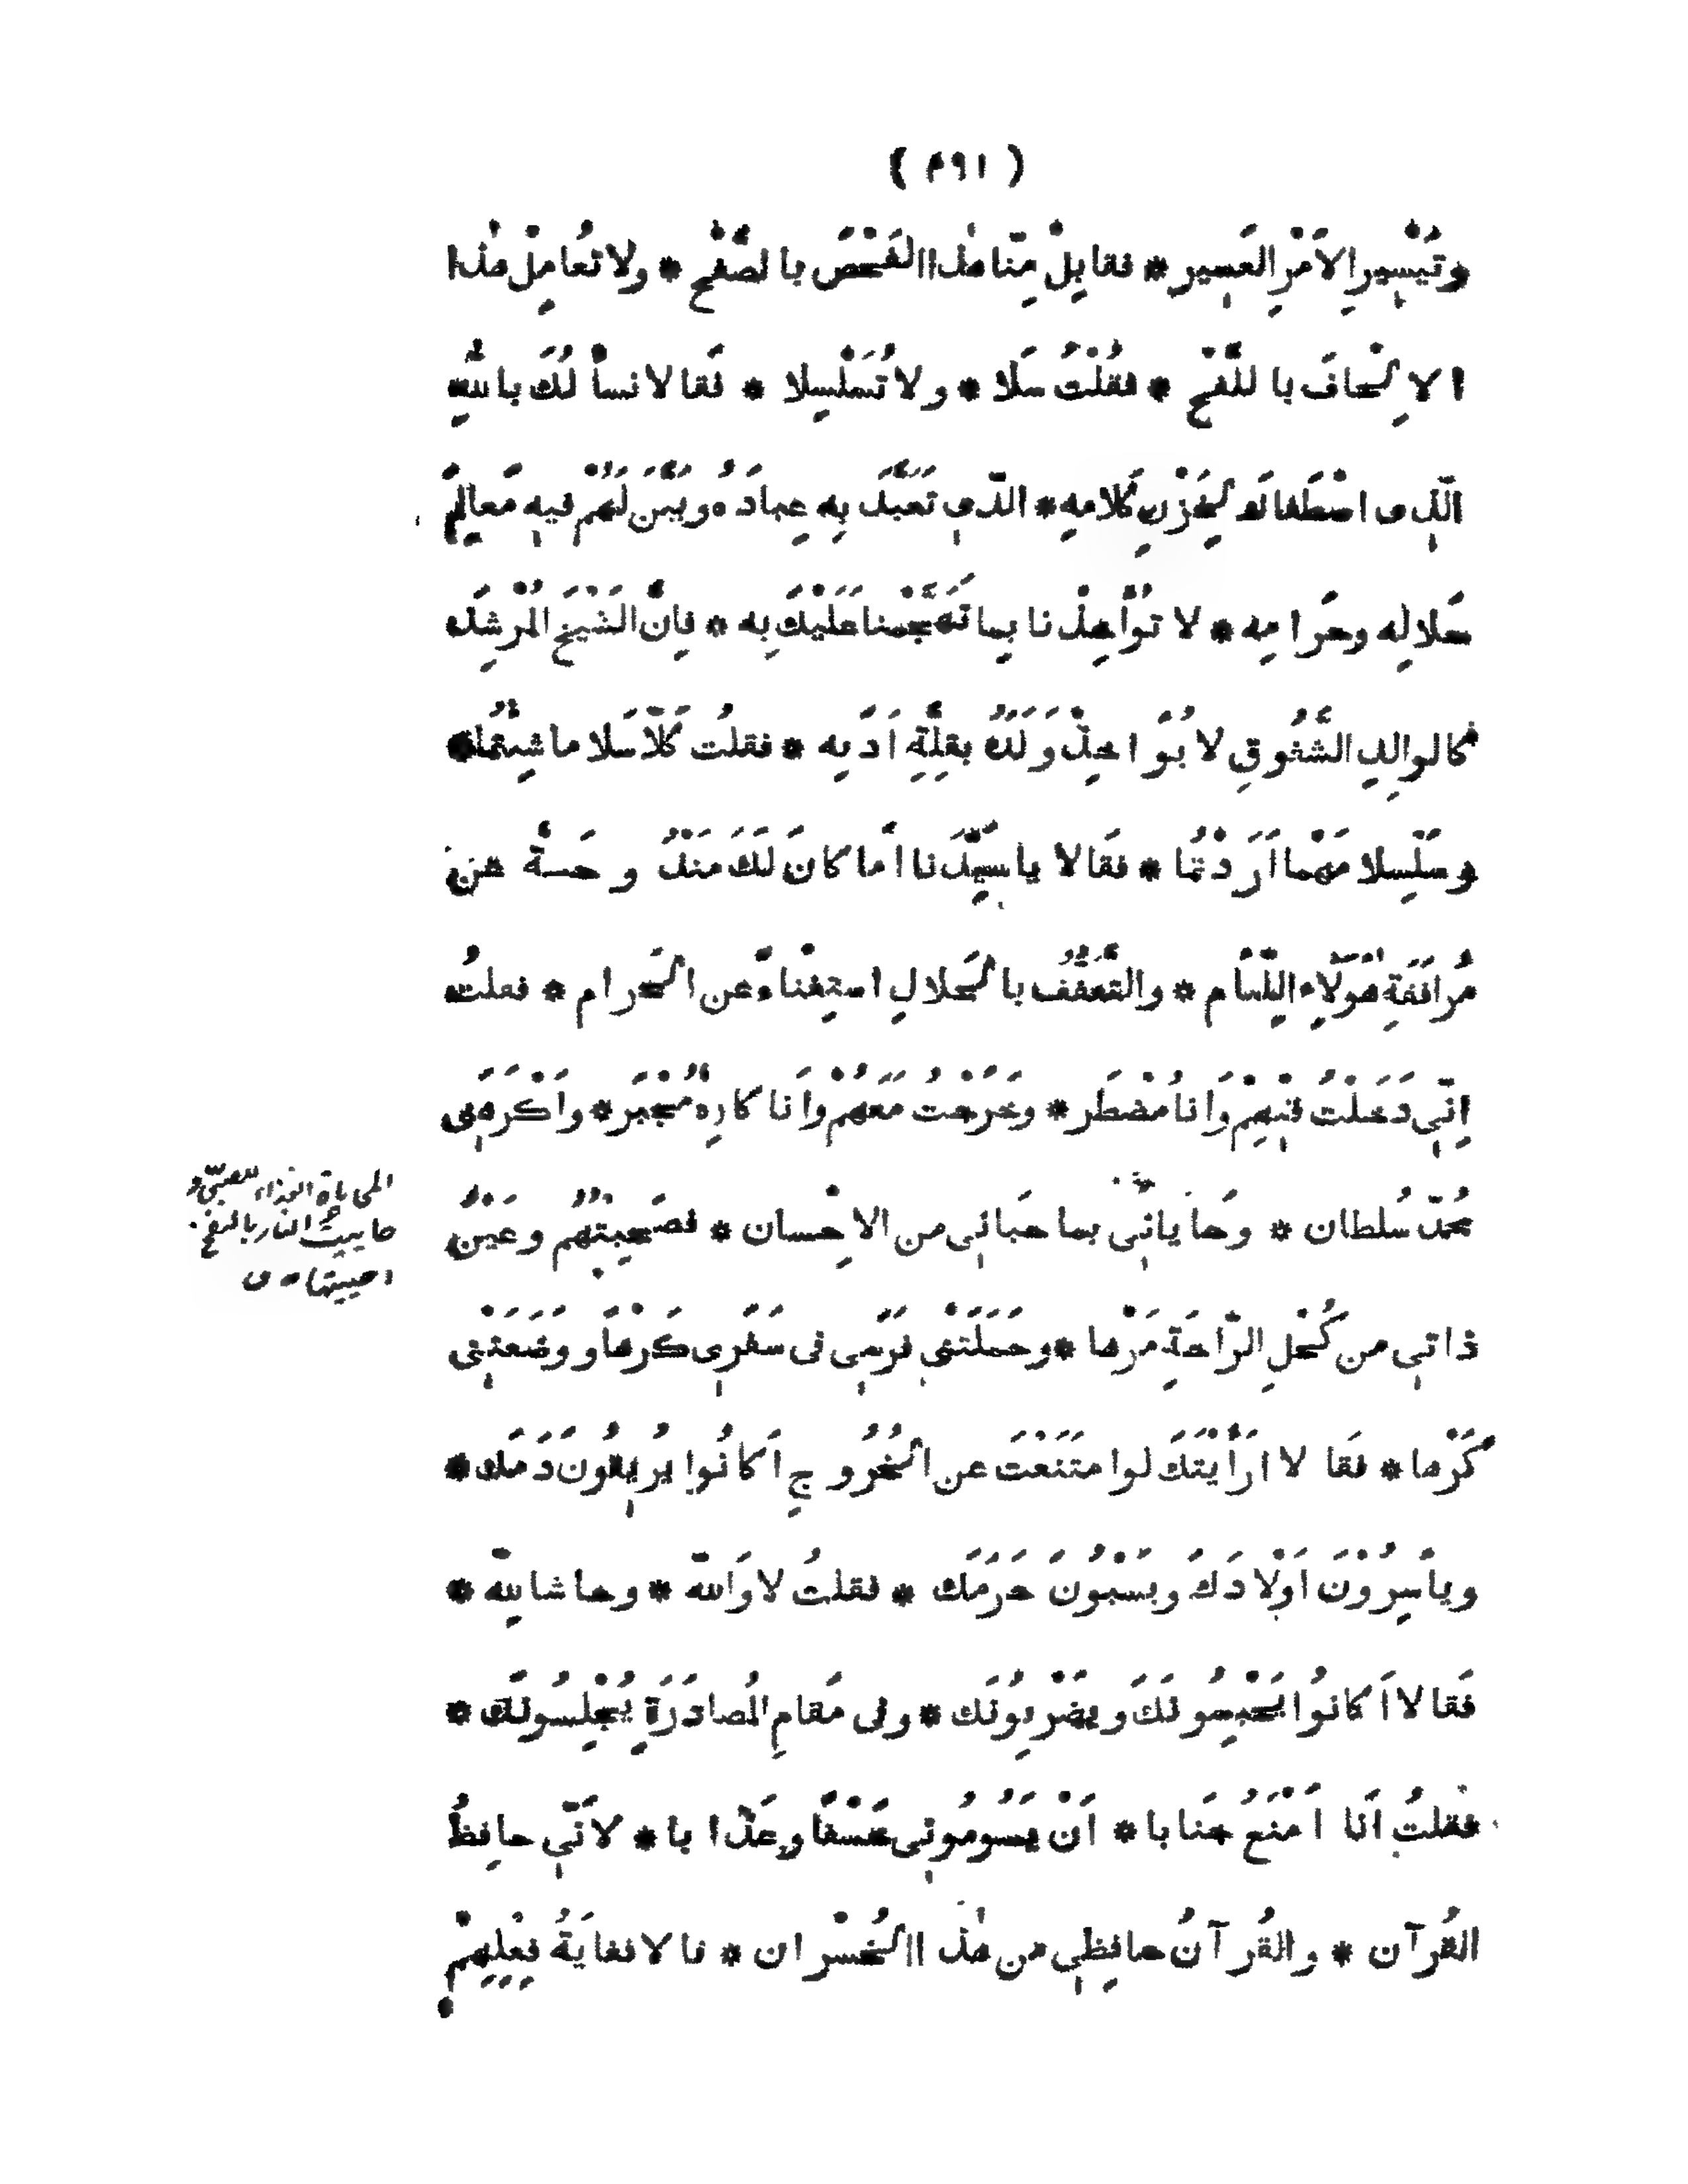 ( ١٩٢ )
وتَيْسيرِ الاَمْرِ العَسير * فقابِلْ مِنّا هٰذا الفَحْصَ بالصَّفْح * ولا تُعامِلْ هٰذا
الاِلْحافَ باللَّفْح * فقُلْتُ سَلا * ولا تُسَلْسِلا * فَقالا نسأ لُكَ باللّٰهِ
الَّذى اصْطَفاكَ لِخَزْنِ كَلامِهِ * الذّى تَعَبَّدَ بِه عِبادَهُ وبَيَّنَ لَهُمْ فيهِ مَعالِمَ
حَلالِه وحَرامِه * لا تُؤاَخِذْنا بِما تَهَجَّمْنا عَلَيْكَ بِه * فاِنَّ الشَيْخَ المُرْشِدَ
كالوالِدِ الشَّفُوقِ لا يُؤاخِذْ وَلَدَهُ بقِلَّةِ اَدَبِه * فقلتُ كَلّا سَلا ما شِئْتُما *
وسَلْسِلا مَهْما اَرَدْتُما * فقَالا يا سَيِّدَنا اَما كانَ لَكَ مَنْدُوحَةٌ عن
مُرافَقَةِ هٰؤلاءِ اللِّئام * والتَّعَفُّفُ بالحَلالِ استِغْناءً عن الحَرام * فقلتُ
اِنّى دَخَلْتُ فيْهِمْ وَاَنا مُضْطَر * وخَرَجْتُ مَعَهُمْ وَاَنا كارِهٌ مُجْبَر * واَكْرَهَنى
مُحمّد سُلطان * وحَايانى بما حَبانى من الاِحْسان * فصَحِبتُهُم وعَيْنُ
ذاتى من كُحْلِ الرّاحَةِ مَرْها * وحَمَلَتْنى فَرَسى فى سَفَرى كَرْهًا ووَضَعَتْنى
كَرْها * فقَالا اَرَأَيْتَكَ لوامْتَنَعْتَ عن الخُرُوجِ اَكانُوا يُريقُونَ دَمَك *
وياْسِرُوْنَ اَوْلادَكَ ويَسْبُونَ حَرَمَك * فقلتُ لا وَاللّٰه * وحاشا للّٰه *
فقَالا اَكانُوا يَحْبِسُونَكَ ويضْرِبُونَك * وفى مَقامِ المُصادَرَةِ يُجْلِسُونَك *
فقلتُ اَنا اَمْنَعُ جَنابا * اَنْ يَسُومُونى خَسْفًا وعَذابا * لاَنّى حافِظُ
القُرآن * والقُرآنُ حافِظى من هٰذا الخُسْران * قالا فغايَةُ فِعْلِهِمْ
المحاياة الغذاء للصبىّ و
حاييت النار بالنفخ
احييتها ه ق